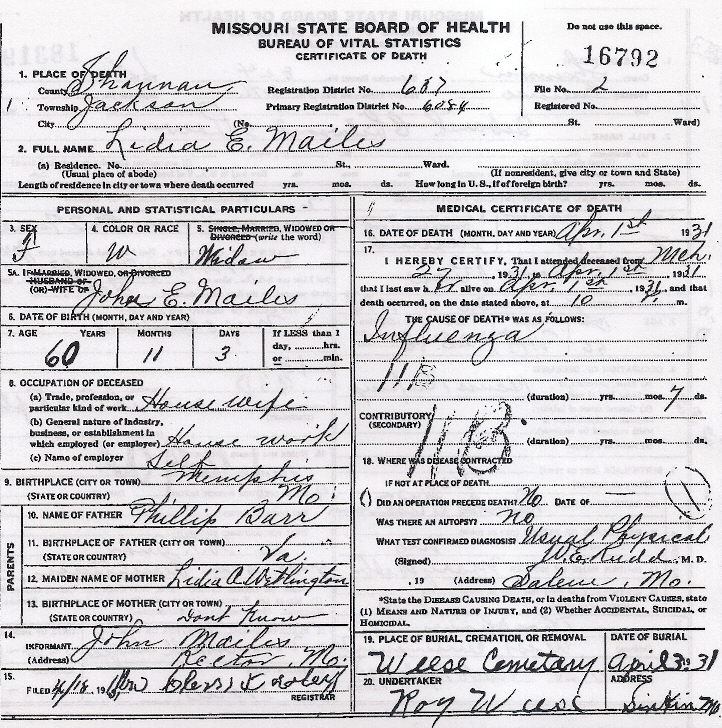 MISSOURI STATE BOARD OF HEALTH
BUREAU OF VITAL STATISTICS
CERTIFICATE OF DEATH
Do not use this space.
16792
1. PLACE OF DEATH
County Shannan Registration District No. 687 File No. 2
Township Jackson Primary Registration District No. 6084 Registered No.
City (No. St. Ward)
2. FULL NAME Lidia E. Mailes
(a) Residence. No. St., Ward.
(Usual place of abode) (If nonresident, give city or town and State)
Length of residence in city or town where death occurred yrs. mos. ds. How long in U.S., if of foreign birth? yrs. mos. ds.
PERSONAL AND STATISTICAL PARTICULARS
3. SEX F
4. COLOR OR RACE W
5. SINGLE, MARRIED, WIDOWED OR DIVORCED (write the word) Widow
5A. IF MARRIED, WIDOWED, OR DIVORCED
HUSBAND OF
(OR) WIFE OF John E. Mailes
6. DATE OF BIRTH (MONTH, DAY AND YEAR)
7. AGE YEARS MONTHS DAYS If LESS than 1 day, hrs. or min.
60 11 3
8. OCCUPATION OF DECEASED
(a) Trade, profession, or particular kind of work House wife
(b) General nature of industry, business, or establishment in which employed (or employer) House work
(c) Name of employer Self
9. BIRTHPLACE (CITY OR TOWN) Memphis
(STATE OR COUNTRY) Mo.
PARENTS
10. NAME OF FATHER Phillip Barr
11. BIRTHPLACE OF FATHER (CITY OR TOWN)
(STATE OR COUNTRY) Va.
12. MAIDEN NAME OF MOTHER Lidia A Wethington
13. BIRTHPLACE OF MOTHER (CITY OR TOWN)
(STATE OR COUNTRY) Dont Know
14. INFORMANT John Mailes
(Address) Rector, Mo.
15. FILED 4/18, 1931
REGISTRAR
MEDICAL CERTIFICATE OF DEATH
16. DATE OF DEATH (MONTH, DAY AND YEAR) Apr. 1st 1931
17. I HEREBY CERTIFY, That I attended deceased from Mch.
27, 1931, to Apr. 1st, 1931
that I last saw her alive on Apr. 1st, 1931, and that
death occurred, on the date stated above, at 10 m.
THE CAUSE OF DEATH* WAS AS FOLLOWS:
Influenza
11B
(duration) yrs. mos. 7 ds.
CONTRIBUTORY
(SECONDARY)
11B
(duration) yrs. mos. ds.
18. WHERE WAS DISEASE CONTRACTED
IF NOT AT PLACE OF DEATH
DID AN OPERATION PRECEDE DEATH? No DATE OF —
WAS THERE AN AUTOPSY? No
WHAT TEST CONFIRMED DIAGNOSIS? Usual Physical
(Signed) W.E. Rudd, M. D.
, 19 (Address) Salem, Mo.
*State the DISEASE CAUSING DEATH, or in deaths from VIOLENT CAUSES, state
(1) MEANS AND NATURE OF INJURY, and (2) Whether ACCIDENTAL, SUICIDAL, or
HOMICIDAL.
19. PLACE OF BURIAL, CREMATION, OR REMOVAL DATE OF BURIAL
Weese Cemetary April 3 1931
20. UNDERTAKER ADDRESS
Roy Weese Sinkin Mo